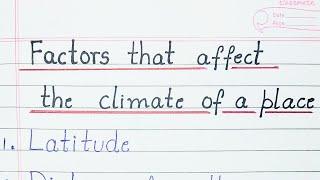 classmate
Date
Page
Factors that affect
the climate of a place
1. Latitude